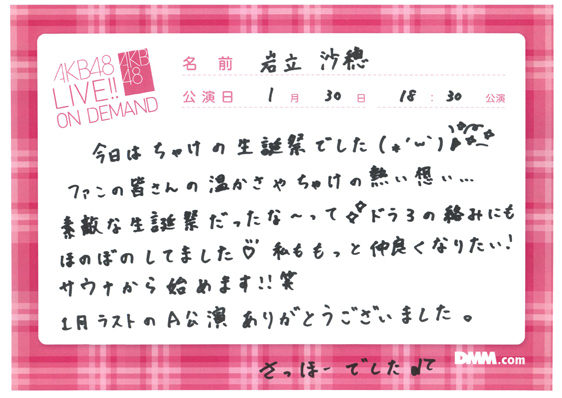 AKB48
LIVE!!
ON DEMAND
AKB
48
名前 岩立 沙穂
公演日 1月30日 18:30公演
今日はちゃけの生誕祭でした(*'ω')
ファンの皆さんの温かさやちゃけの熱い想い...
素敵な生誕祭だったな〜って ドラ3の絡みにも
ほのぼのしてました♡ 私ももっと仲良くなりたい!
サウナから始めます!!笑
1月ラストのA公演ありがとうございました。
DMM.com
さっほーでした♪て